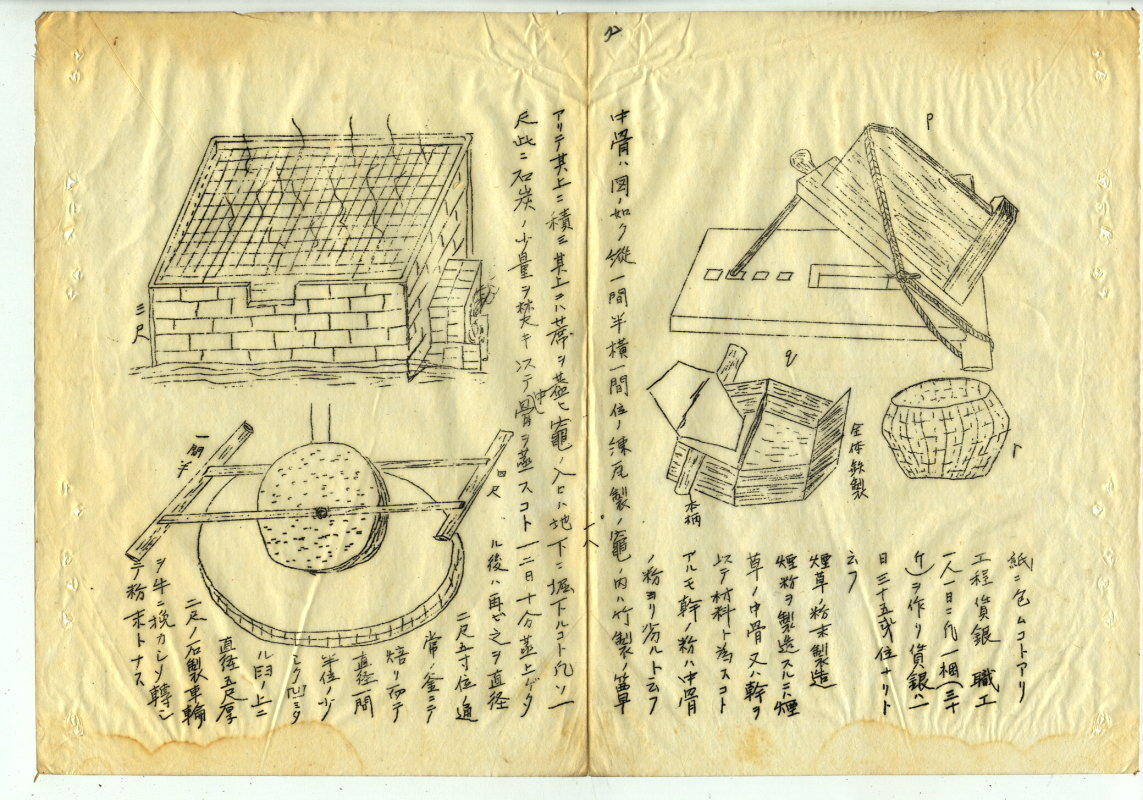 紙ニ包ムコトアリ
工程賃銀 職工
一人一日ニ凡一梱(三十
斤)ヲ作リ賃銀ハ一
日三十五戔位ナリト
云フ
煙草ノ粉末製造
煙粉ヲ製造スルニハ煙
草ノ中骨又ハ幹ヲ
以テ材料ト為スコト
アルモ幹ノ粉ハ中骨
ノ粉ヨリ劣ルト云フ
中骨ハ図ノ如ク縦一間半横一間位ノ煉瓦製ノ竈ノ内ハ竹製ノ簞
アリテ其上ニ積ミ其上ニハ蓆ヲ蓋ヒ竈ノ入口ハ地下ニ堀下ルコト凡ソ一
尺此ニ石炭ノ少量ヲ焚キ以テ中骨ヲ蒸スコト一二日十分蒸上ゲタ
ル後ハ再ビ之ヲ直径
二尺五寸位ノ通
常ノ釜ニテ
焙リ而テ
直径一間
半位ノ少
シク凹ミタ
ル臼ノ上ニ
直径五尺厚
二尺ノ石製車輪
ヲ牛ニ挽カシメ轉シ
テ粉末トナス
P
q
r
全体鉄製
木柄
三尺
一間半
四尺